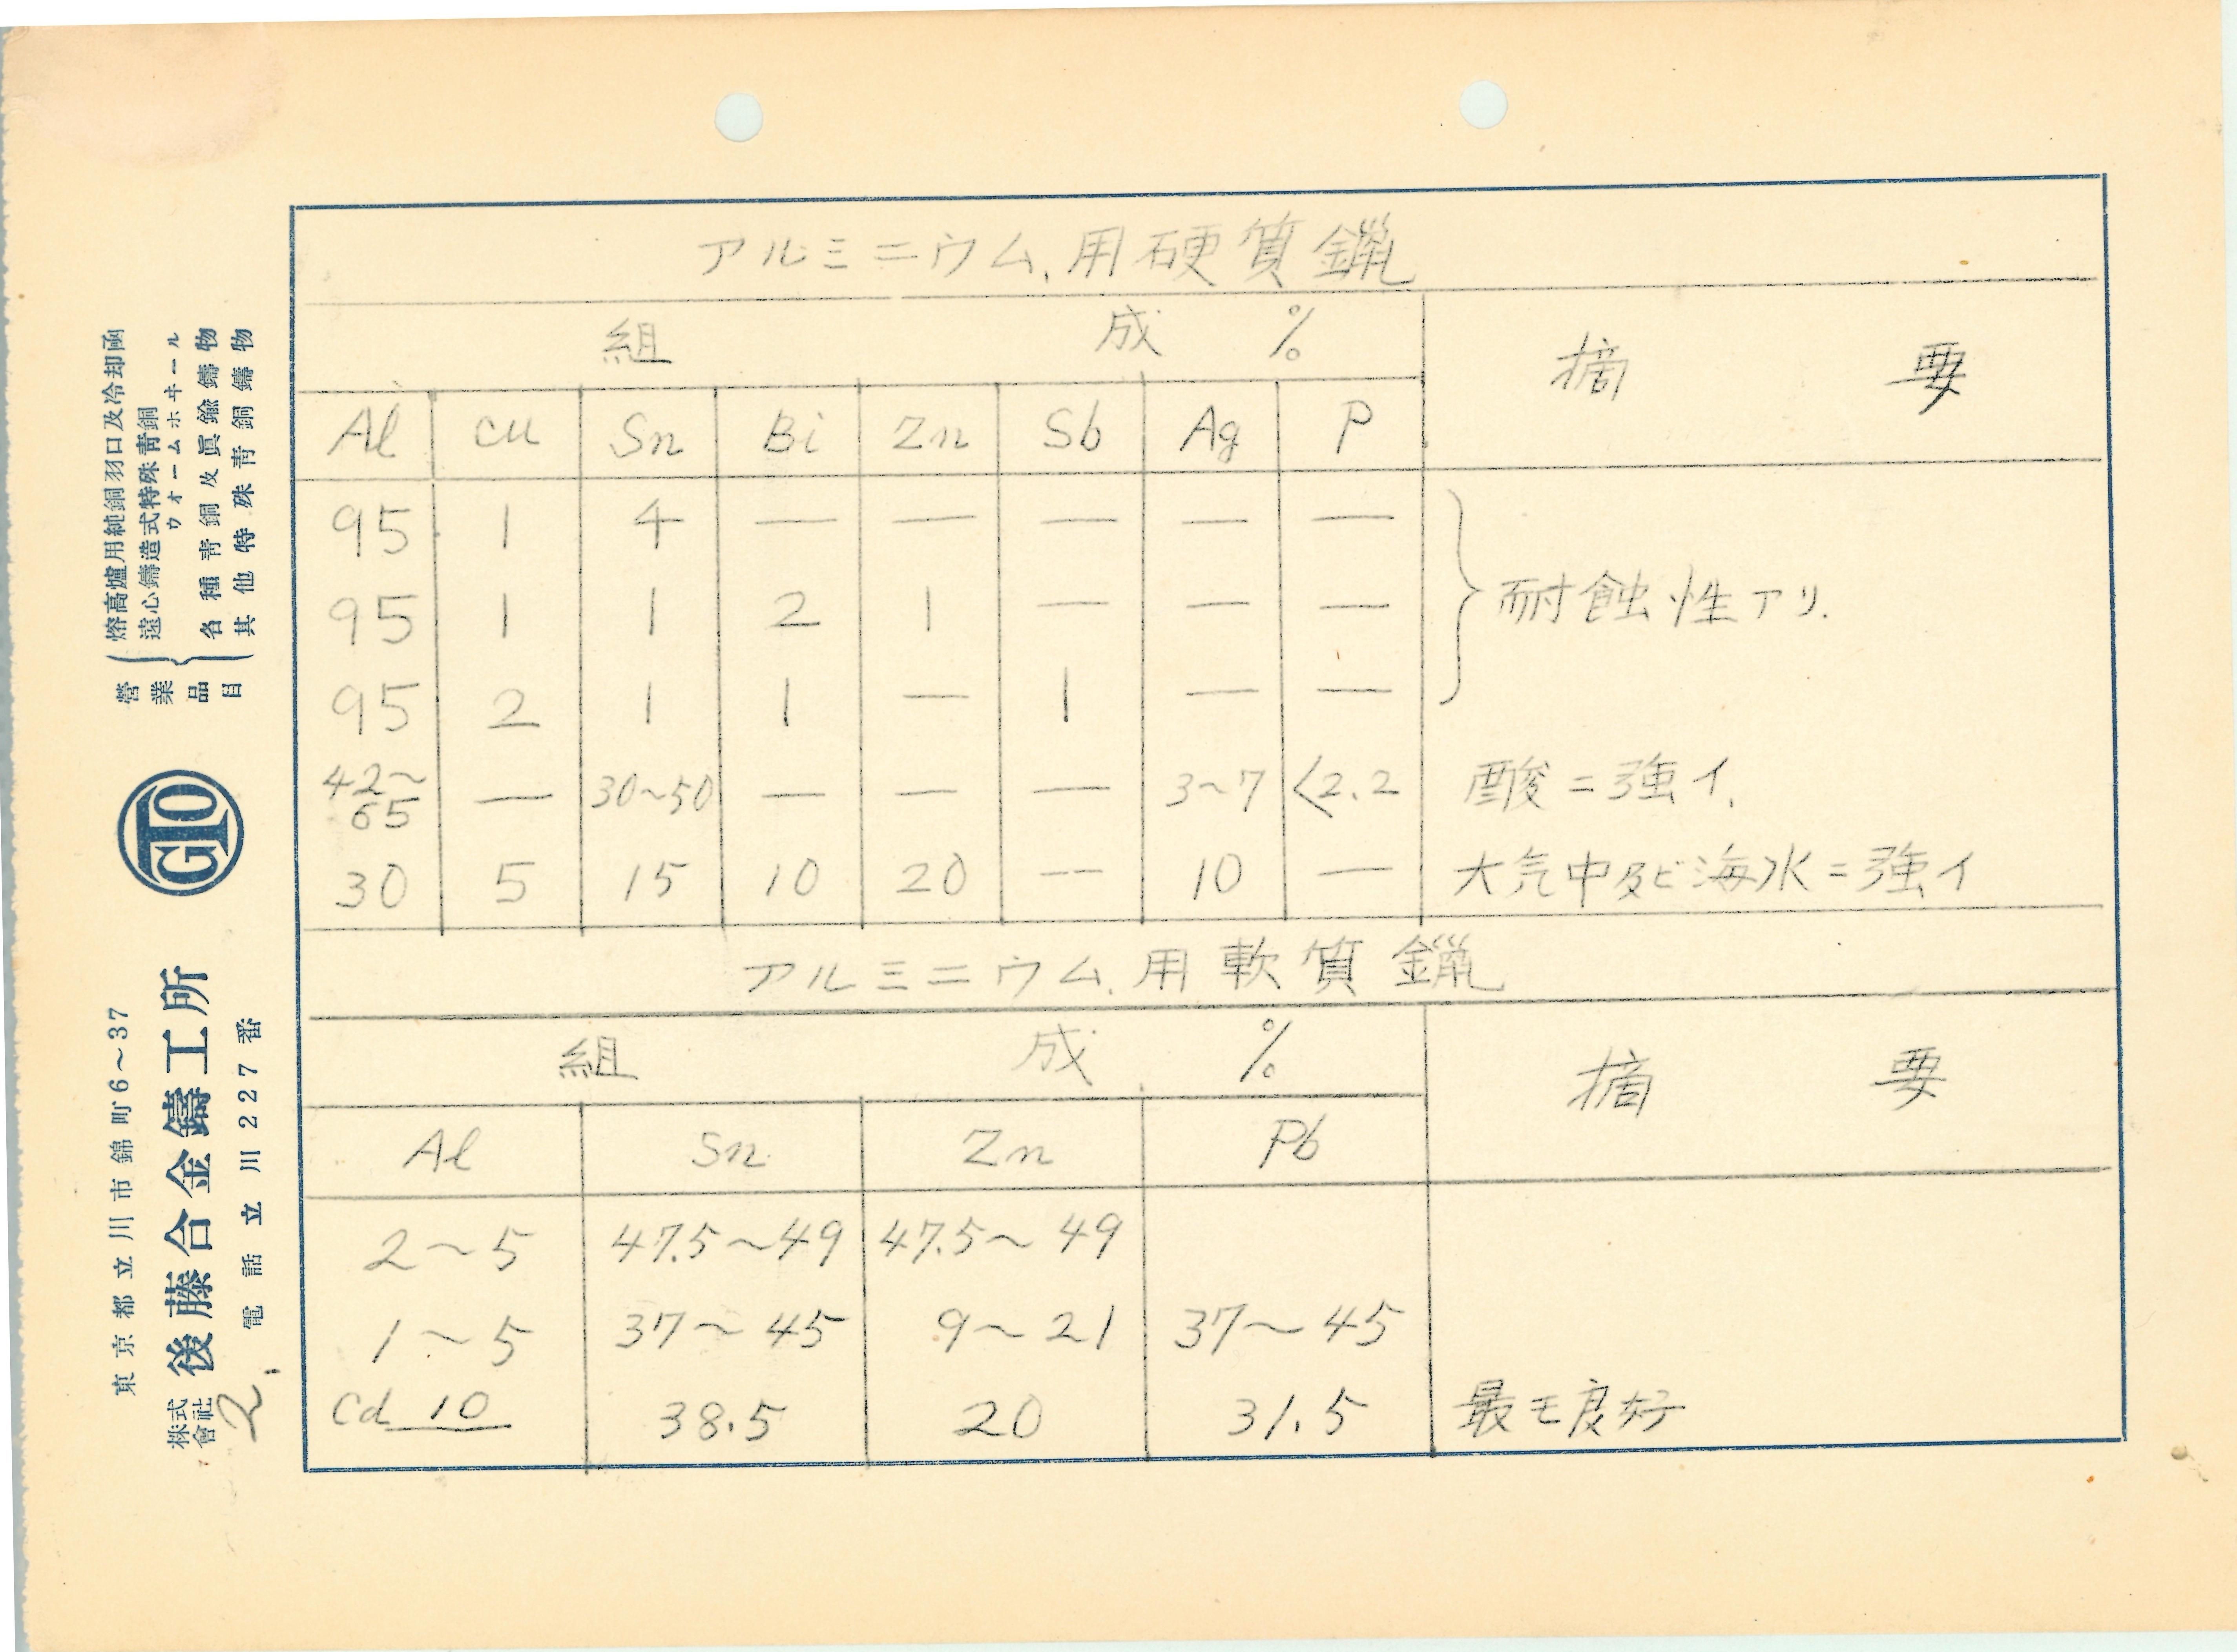 アルミニウム用硬質鑞
組 成 %
摘 要
Al Cu Sn Bi Zn Sb Ag P
95 1 4 — — — — —
95 1 1 2 1 — — —
95 2 1 1 — 1 — —
耐蝕性アリ.
42~65 — 30~50 — — — 3~7 <2.2 酸ニ強イ.
30 5 15 10 20 -- 10 — 大気中及ビ海水ニ強イ
アルミニウム用軟質鑞
組 成 %
摘 要
Al Sn Zn Pb
2~5 47.5~49 47.5~49
1~5 37~45 9~21 37~45
Cd 10 38.5 20 31.5 最モ良好
東京都立川市錦町6~37
株式會社 後藤合金鑄工所
電話立川227番
GTO
營業品目
熔高爐用純銅羽口及冷却函
遠心鑄造式特殊靑銅
ウォームホヰール
各種靑銅及眞鍮鑄物
其他特殊靑銅鑄物
2.